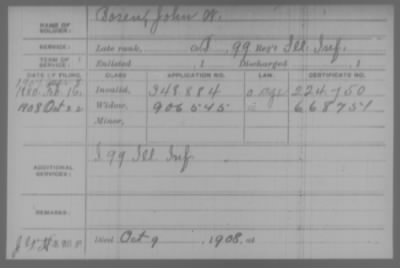 NAME OF SOLDIER: Bosen, John W.
SERVICE: Late rank, Co. I, 99 Reg't Ill. Inf.
TERM OF SERVICE: Enlisted , 1 Discharged , 1
DATE OF FILING. CLASS. APPLICATION NO. LAW. CERTIFICATE NO.
1880 Feb. 16, Invalid, 348884 224,750
1908 Oct 22 Widow, 906545 668751
Minor,
ADDITIONAL SERVICES: I 99 Ill. Inf
REMARKS:
Died Oct 9, 1908, at